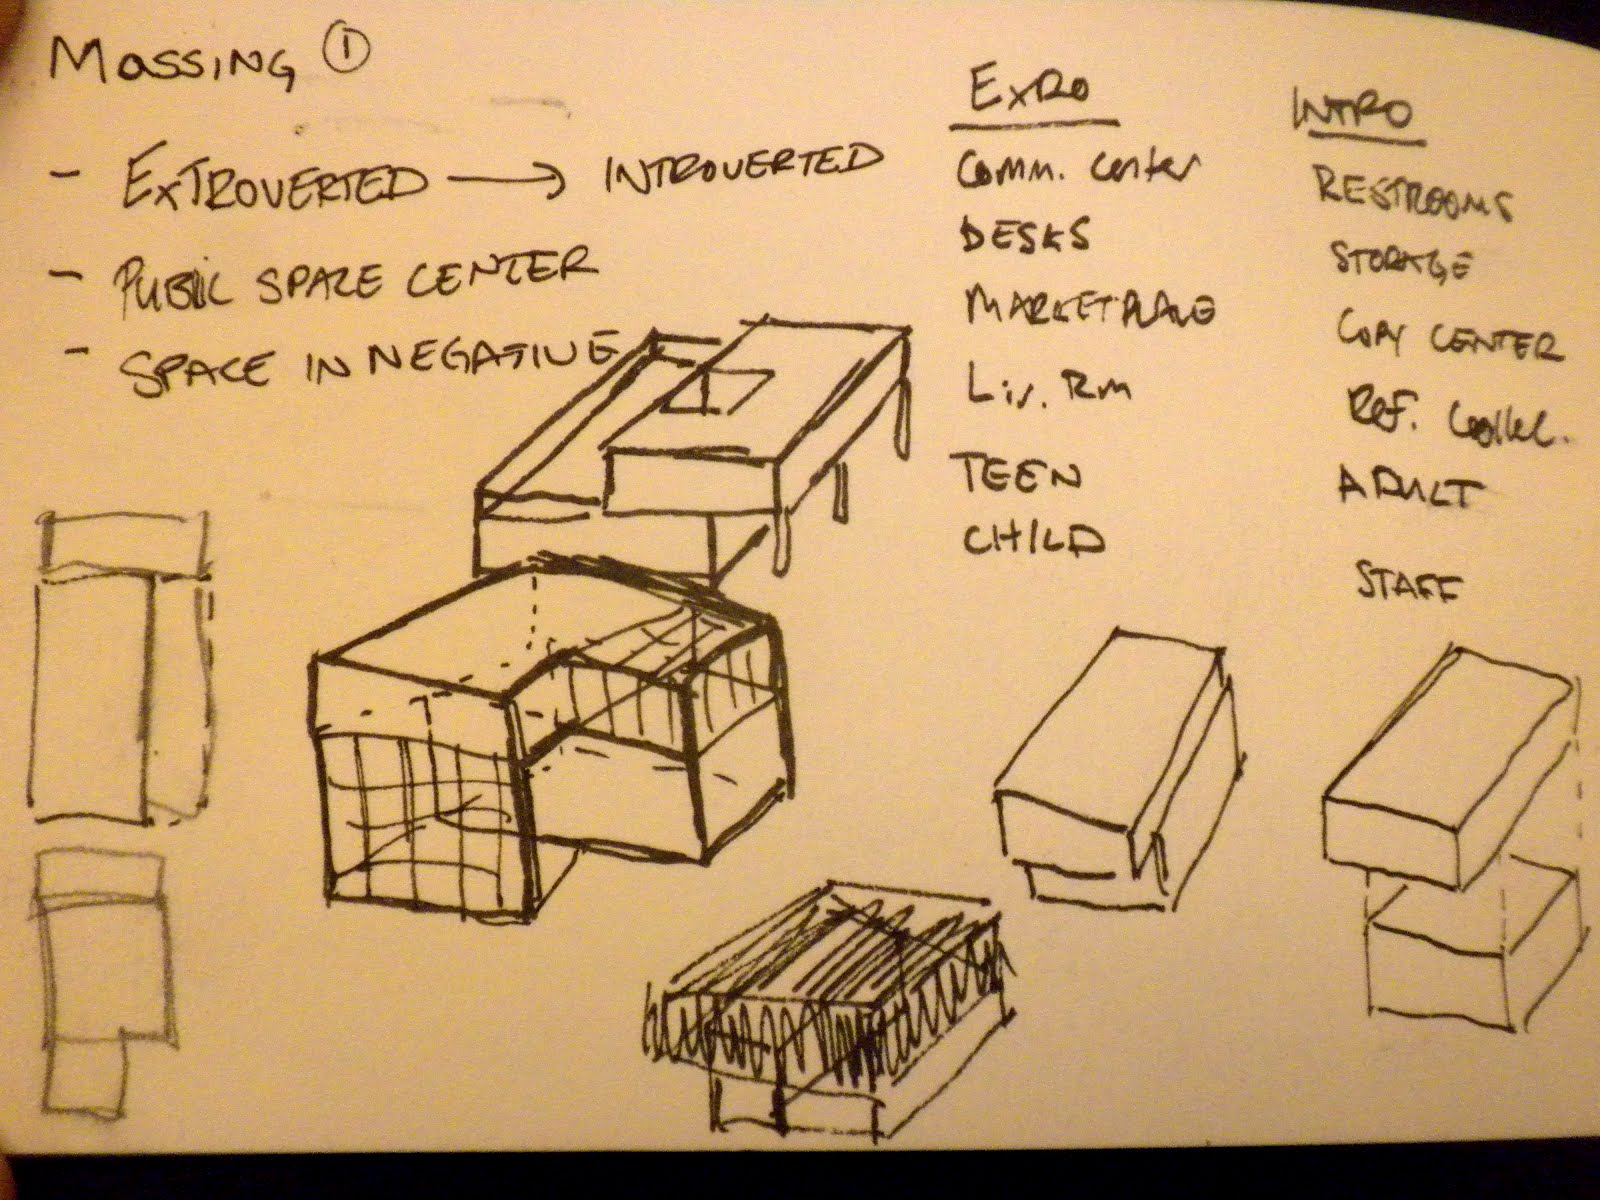 MASSING ①
- EXTROVERTED → INTROVERTED
- PUBLIC SPACE CENTER
- SPACE IN NEGATIVE
EXRO
Comm. Center
DESKS
MARKETPLACE
Liv. Rm
TEEN
CHILD
INTRO
RESTROOMS
STORAGE
COPY CENTER
REF. Collec.
ADULT
STAFF